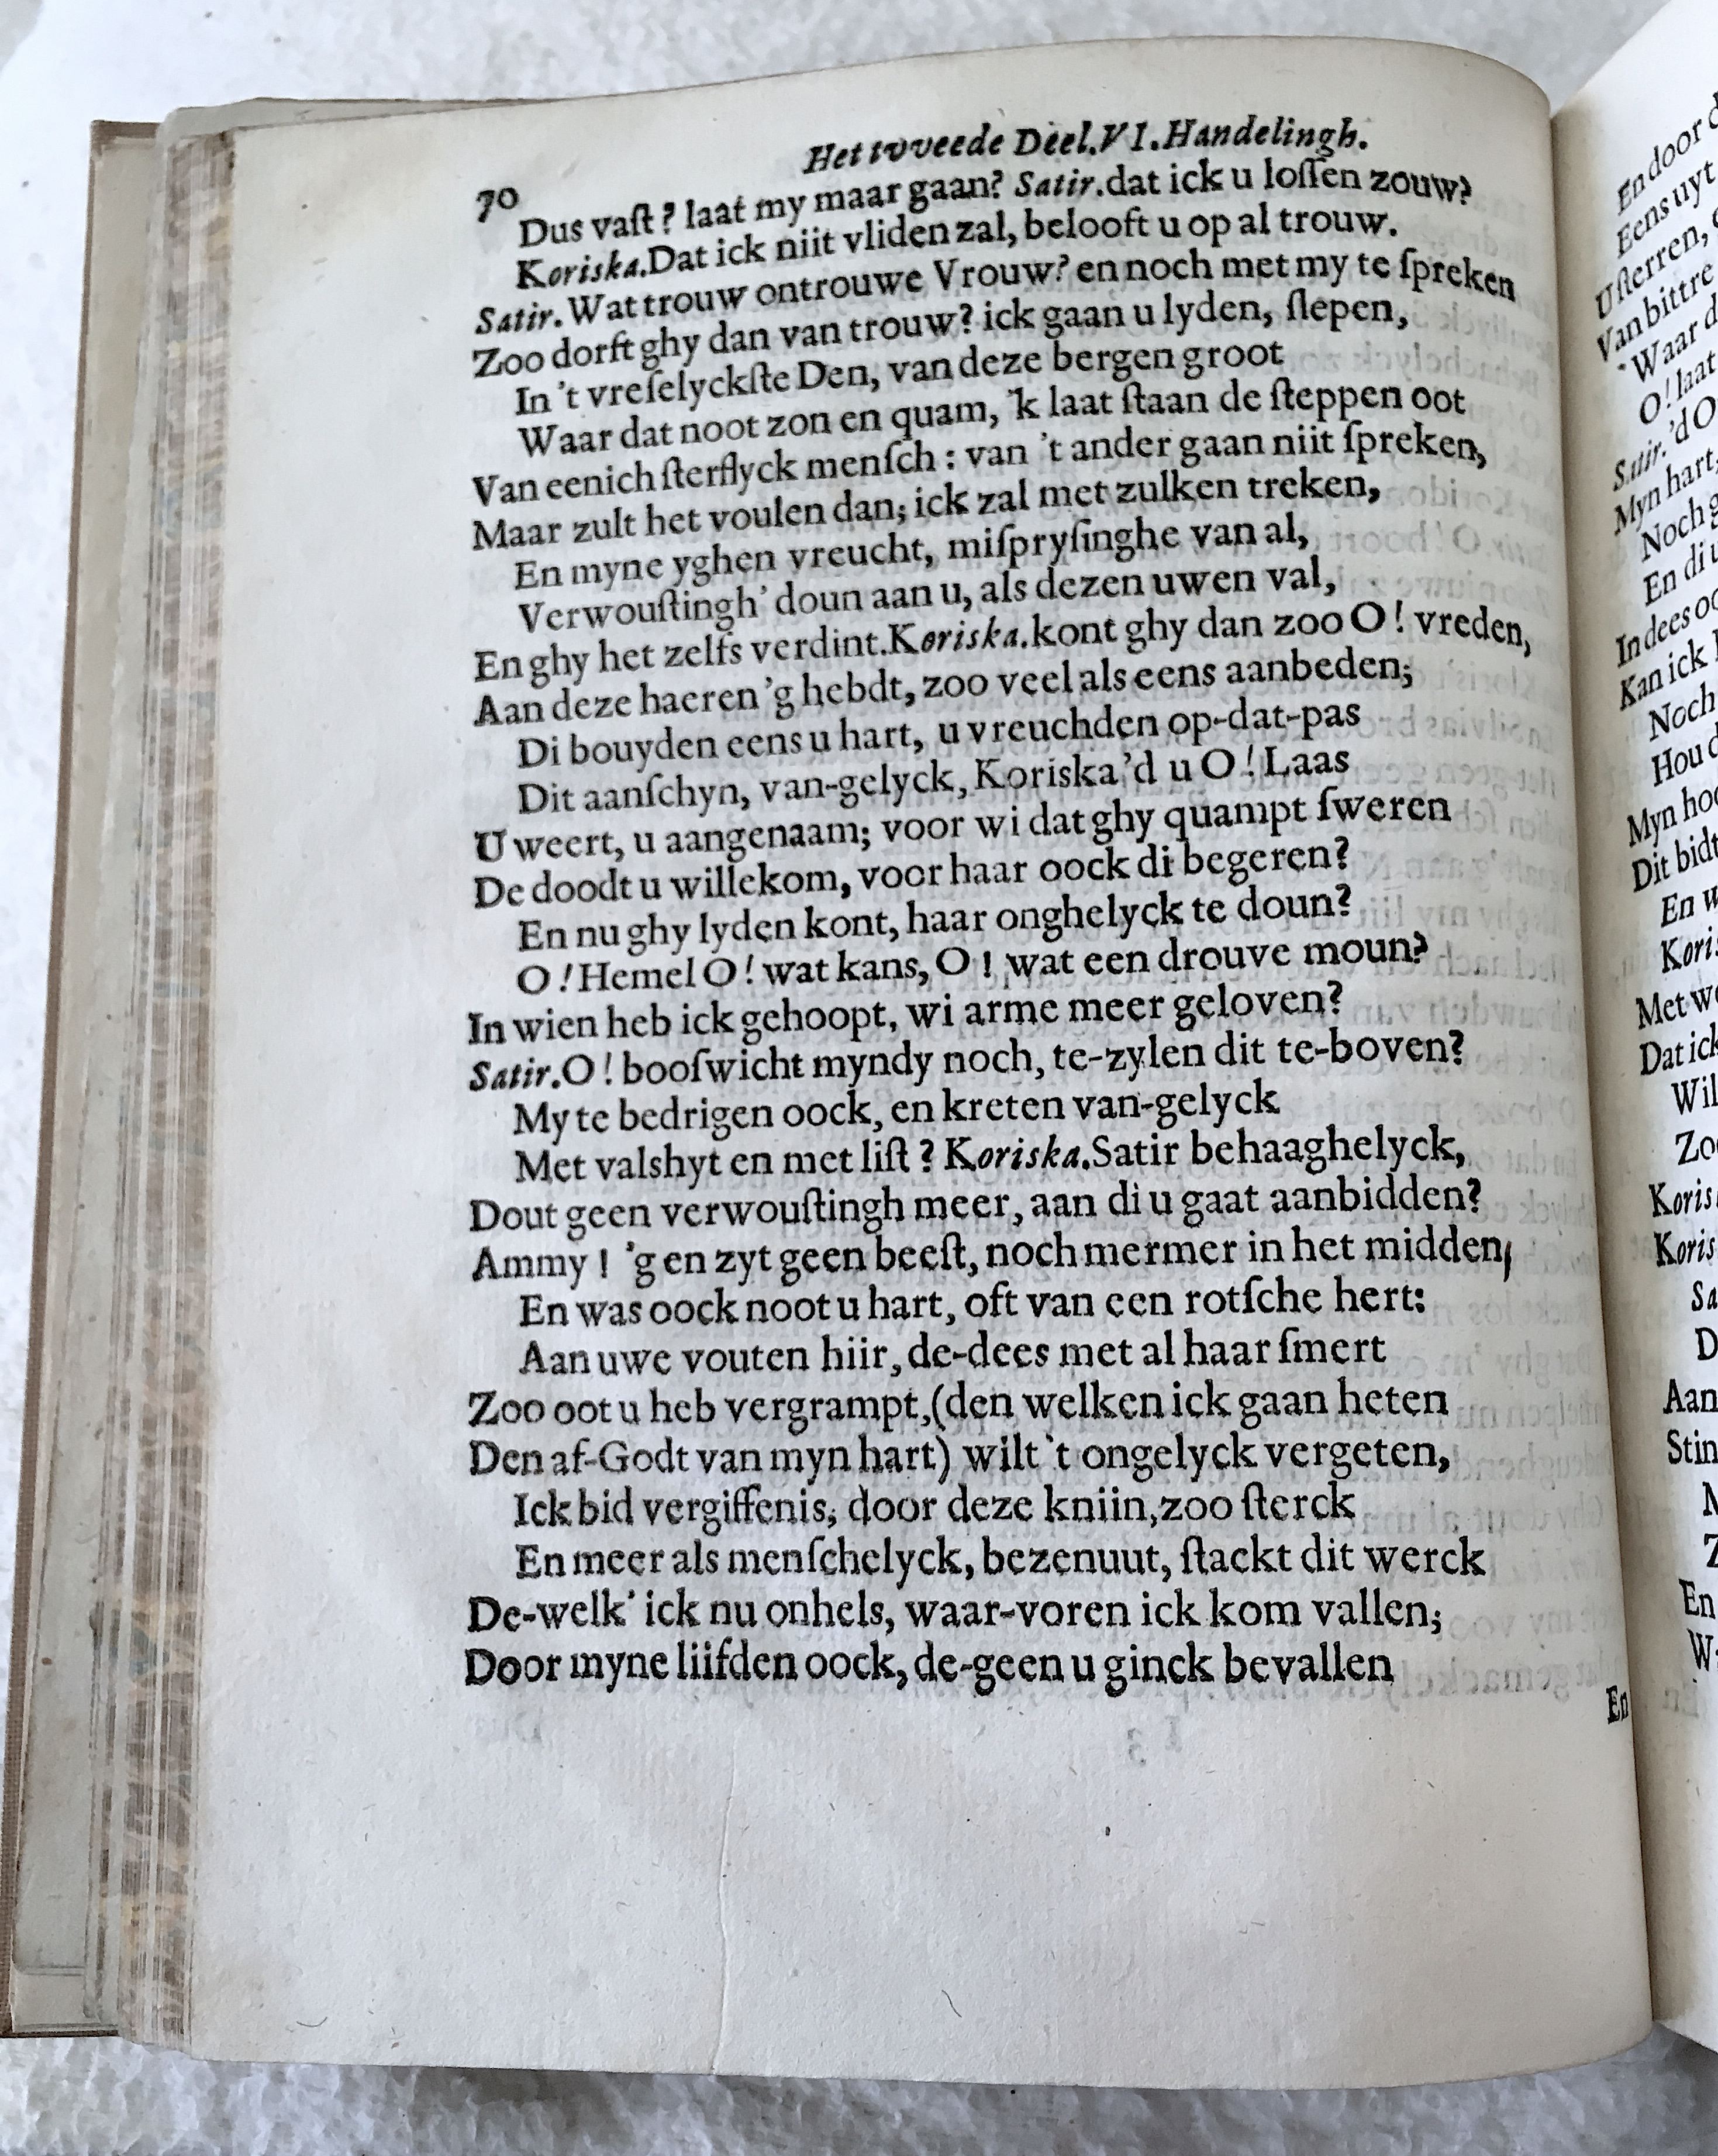 70 Het tvveede Deel. VI. Handelingh.
Dus vaſt? laat my maar gaan? Satir. dat ick u loſſen zouw?
Koriska. Dat ick niit vliden zal, belooft u op al trouw.
Satir. Wat trouw ontrouwe Vrouw? en noch met my te ſpreken
Zoo dorft ghy dan van trouw? ick gaan u lyden, ſlepen,
In 't vreſelyckſte Den, van deze bergen groot
Waar dat noot zon en quam, 'k laat ſtaan de ſteppen oot
Van eenich ſterflyck menſch: van 't ander gaan niit ſpreken,
Maar zult het voulen dan; ick zal met zulken treken,
En myne yghen vreucht, miſpryſinghe van al,
Verwouſtingh' doun aan u, als dezen uwen val,
En ghy het zelfs verdint. Koriska. kont ghy dan zoo O! vreden,
Aan deze haeren 'g hebdt, zoo veel als eens aanbeden;
Di bouyden eens u hart, u vreuchden op-dat-pas
Dit aanſchyn, van-gelyck, Koriska 'd u O! Laas
U weert, u aangenaam; voor wi dat ghy quampt ſweren
De doodt u willekom, voor haar oock di begeren?
En nu ghy lyden kont, haar onghelyck te doun?
O! Hemel O! wat kans, O! wat een drouve moun?
In wien heb ick gehoopt, wi arme meer geloven?
Satir. O! booſwicht myndy noch, te-zylen dit te-boven?
My te bedrigen oock, en kreten van-gelyck
Met valshyt en met liſt? Koriska. Satir behaaghelyck,
Dout geen verwouſtingh meer, aan di u gaat aanbidden?
Ammy! 'g en zyt geen beeſt, noch mermer in het midden,
En was oock noot u hart, oft van een rotſche hert:
Aan uwe vouten hiir, de-dees met al haar ſmert
Zoo oot u heb vergrampt, (den welken ick gaan heten
Den af-Godt van myn hart) wilt 't ongelyck vergeten,
Ick bid vergiffenis, door deze kniin, zoo ſterck
En meer als menſchelyck, bezenuut, ſtackt dit werck
De-welk' ick nu onhels, waar-voren ick kom vallen;
Door myne liifden oock, de-geen u ginck bevallen
En